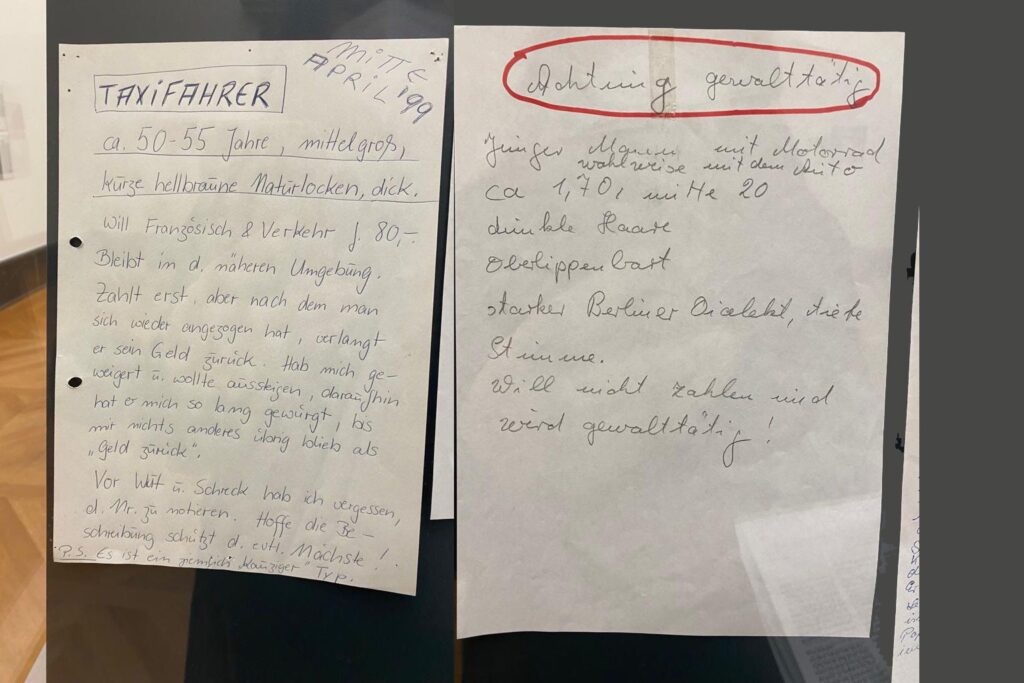 MITTE
APRIL '99
TAXIFAHRER
ca. 50-55 Jahre, mittelgroß,
kurze hellbraune Naturlocken, dick.
Will Französisch & Verkehr f. 80,-.
Bleibt in d. näheren Umgebung.
Zahlt erst, aber nach dem man
sich wieder angezogen hat, verlangt
er sein Geld zurück. Hab mich ge-
weigert u. wollte aussteigen, daraufhin
hat er mich so lang gewürgt, bis
mir nichts anderes übrig blieb als
„Geld zurück".
Vor Wut u. Schreck hab ich vergessen,
d. Nr. zu notieren. Hoffe die Be-
schreibung schützt d. evtl. Nächste!
P.S. Es ist ein ziemlich "kauziger" Typ.
Achtung gewalttätig
Junger Mann mit Motorrad
wahlweise mit dem Auto
ca 1,70, mitte 20
dunkle Haare
Oberlippenbart
starker Berliner Dialekt, tiefe
Stimme.
Will nicht zahlen und
wird gewalttätig!